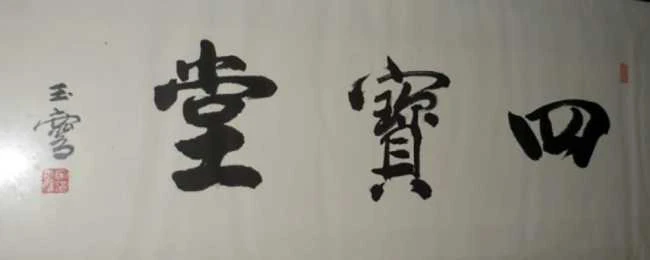 四寶堂
玉騫